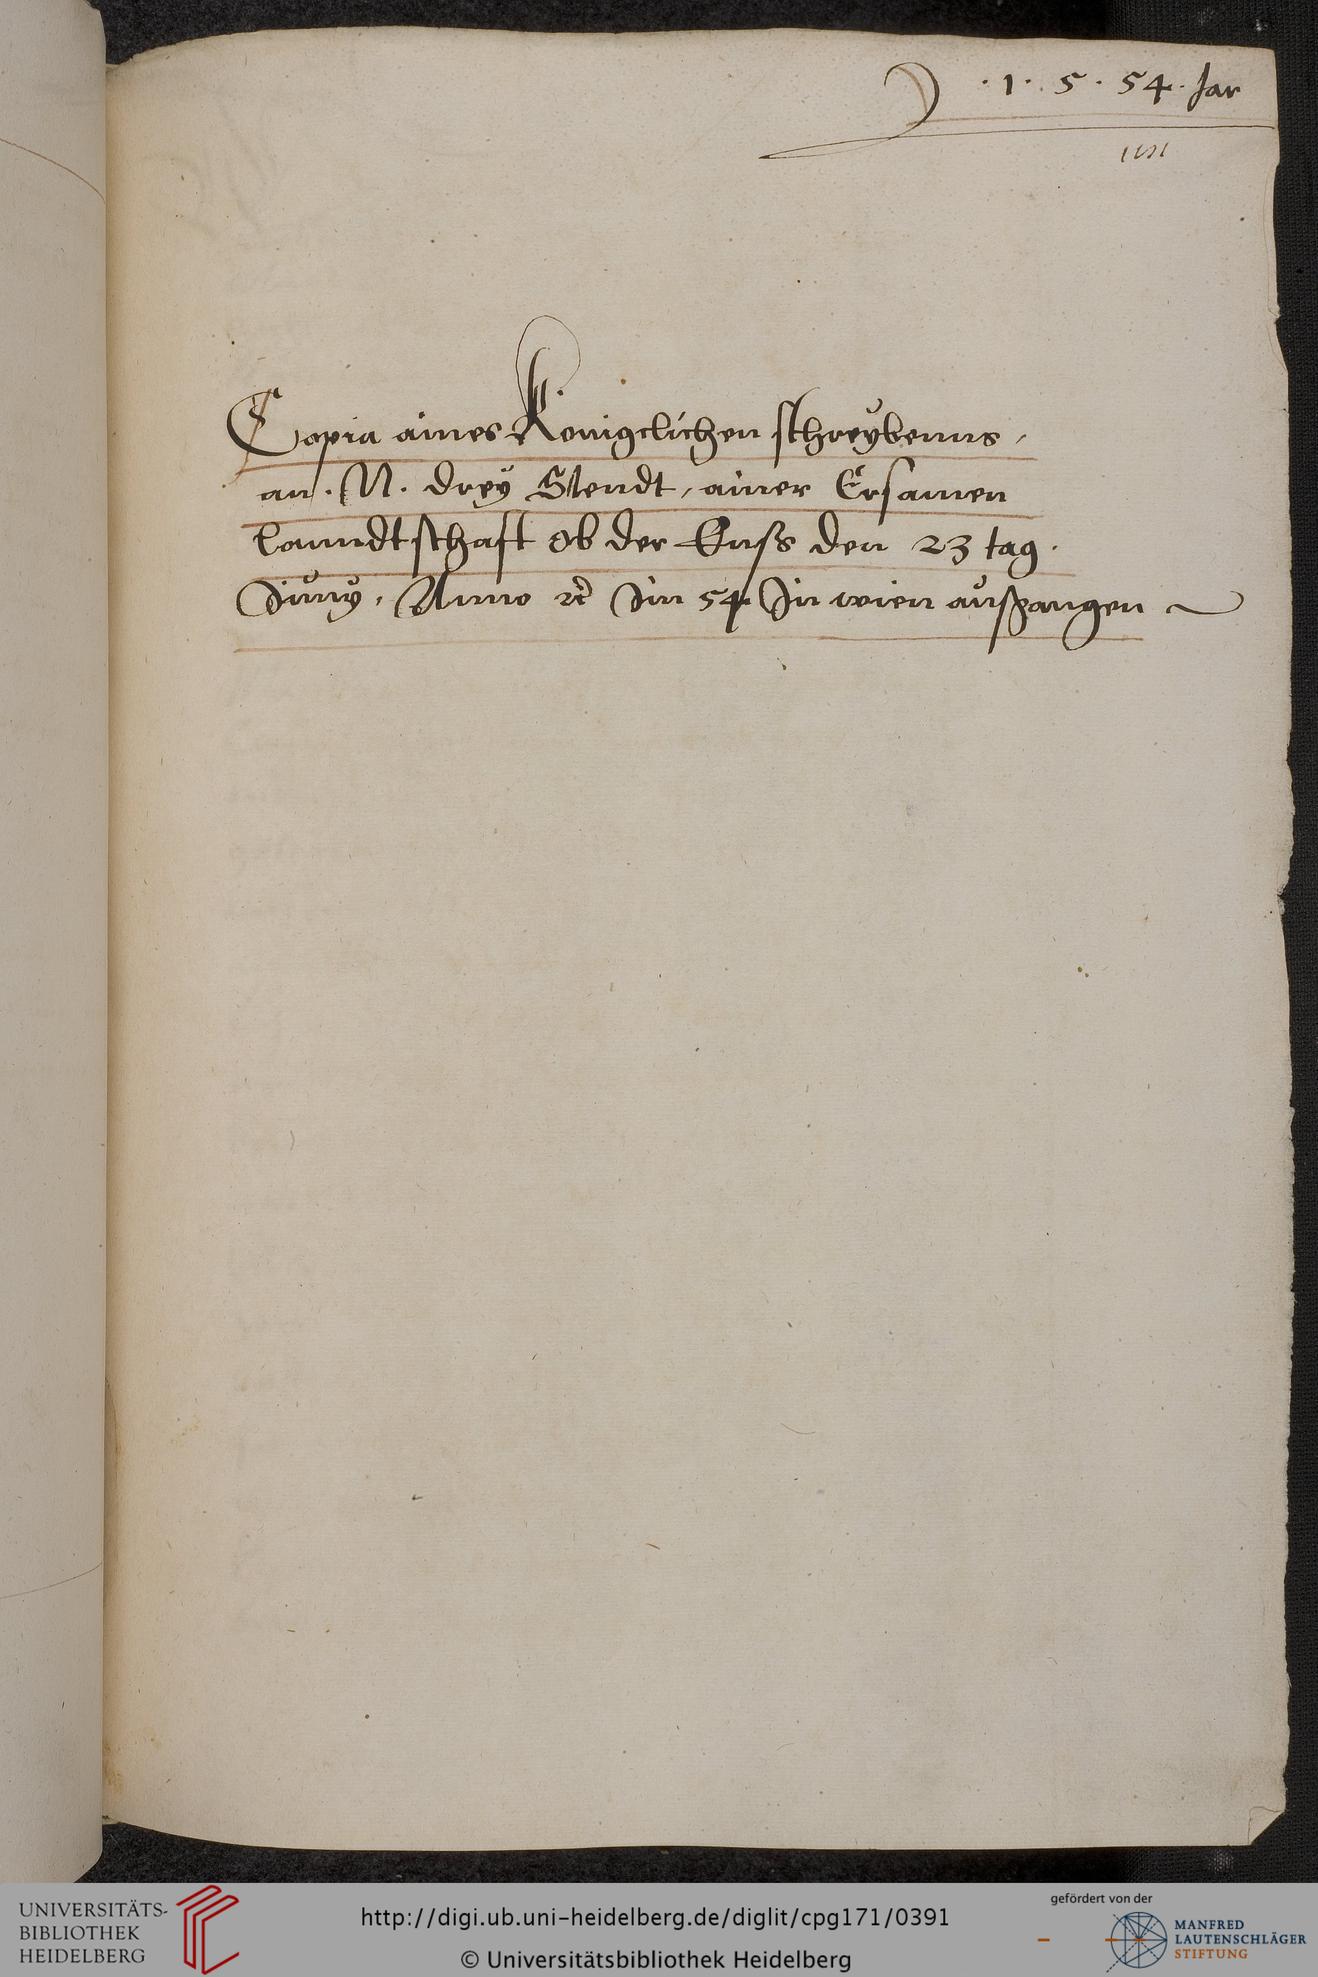 · 1 · 5 · 54 · Jar
Copia aines Konigclichen schreybenns,
an · N · drey Stendt, ainer Ersamen
lanndtschaft ob der Enß den 23 tag ·
Juny, Anno &c Im 54 In wien außgangen
UNIVERSITÄTS-
BIBLIOTHEK
HEIDELBERG
http://digi.ub.uni-heidelberg.de/diglit/cpg171/0391
© Universitätsbibliothek Heidelberg
gefördert von der
MANFRED
LAUTENSCHLÄGER
STIFTUNG